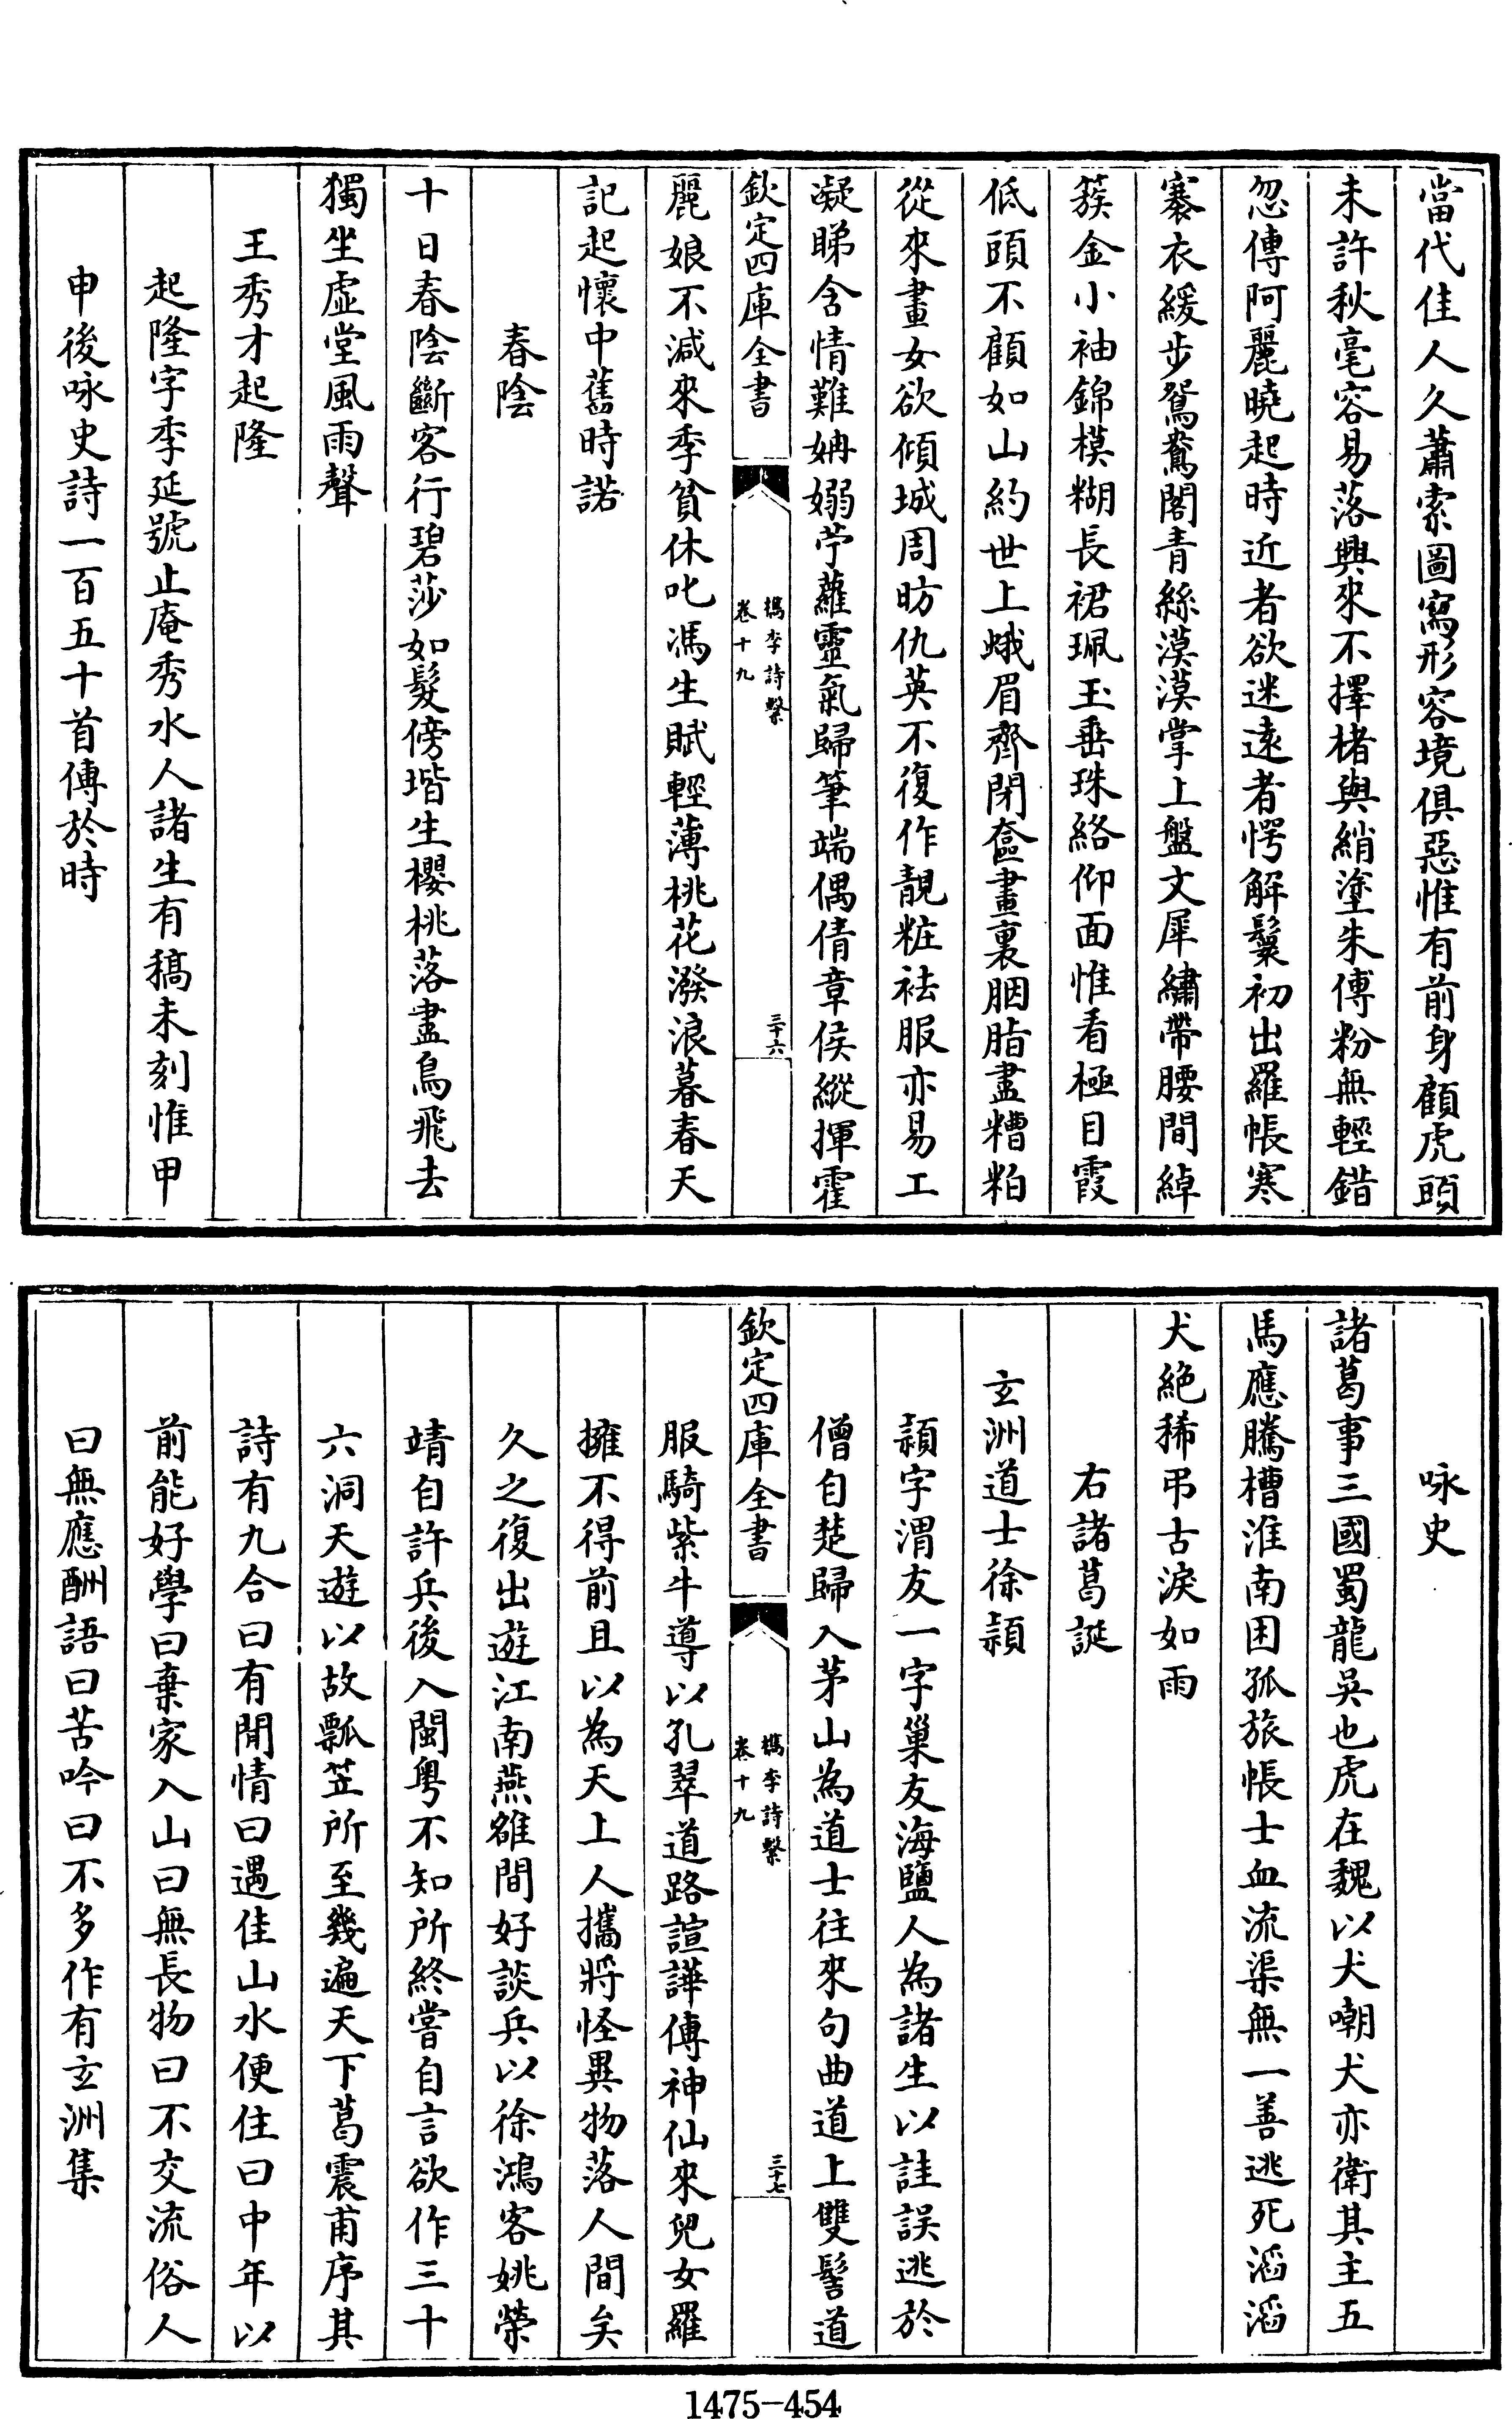 當代佳人久蕭索圖寫形容境俱惡惟有前身顧虎頭
未許秋毫容易落興來不擇楮與綃塗朱傅粉無輕錯
忽傳阿麗曉起時近者欲迷遠者愕解鬟初出羅帳寒
褰衣緩步鴛鴦閣青絲漠漠掌上盤文犀繡帶腰間綽
簇金小袖錦模糊長裙珮玉垂珠絡仰面惟看極目霞
低頭不顧如山約世上蛾眉齊閉奩畫裏胭脂盡糟粕
從來畫女欲傾城周昉仇英不復作靚粧袪服亦易工
凝睇含情難姌嫋苧蘿靈氣歸筆端偶倩章侯縱揮霍
欽定四庫全書
檇李詩繫
卷十九
三十六
麗娘不減來季貧休叱馮生賦輕薄桃花潑浪暮春天
記起懷中舊時諾
春陰
十日春陰斷客行碧莎如髮傍堦生櫻桃落盡鳥飛去
獨坐虛堂風雨聲
王秀才起隆
起隆字季延號止庵秀水人諸生有稿未刻惟甲
申後咏史詩一百五十首傳於時
咏史
諸葛事三國蜀龍吳也虎在魏以犬嘲犬亦衛其主五
馬應騰槽淮南困孤旅帳士血流渠無一善逃死滔滔
犬絕稀弔古淚如雨
右諸葛誕
玄洲道士徐頴
頴字渭友一字巢友海鹽人為諸生以詿誤逃於
僧自楚歸入茅山為道士往來句曲道上雙髻道
欽定四庫全書
檇李詩繫
卷十九
三十七
服騎紫牛導以孔翠道路諠譁傳神仙來兒女羅
擁不得前且以為天上人攜將怪異物落人間矣
久之復出遊江南燕雒間好談兵以徐鴻客姚榮
靖自許兵後入閩粤不知所終嘗自言欲作三十
六洞天遊以故瓢笠所至幾遍天下葛震甫序其
詩有九合曰有閒情曰遇佳山水便住曰中年以
前能好學曰棄家入山曰無長物曰不交流俗人
曰無應酬語曰苦吟曰不多作有玄洲集
1475-454